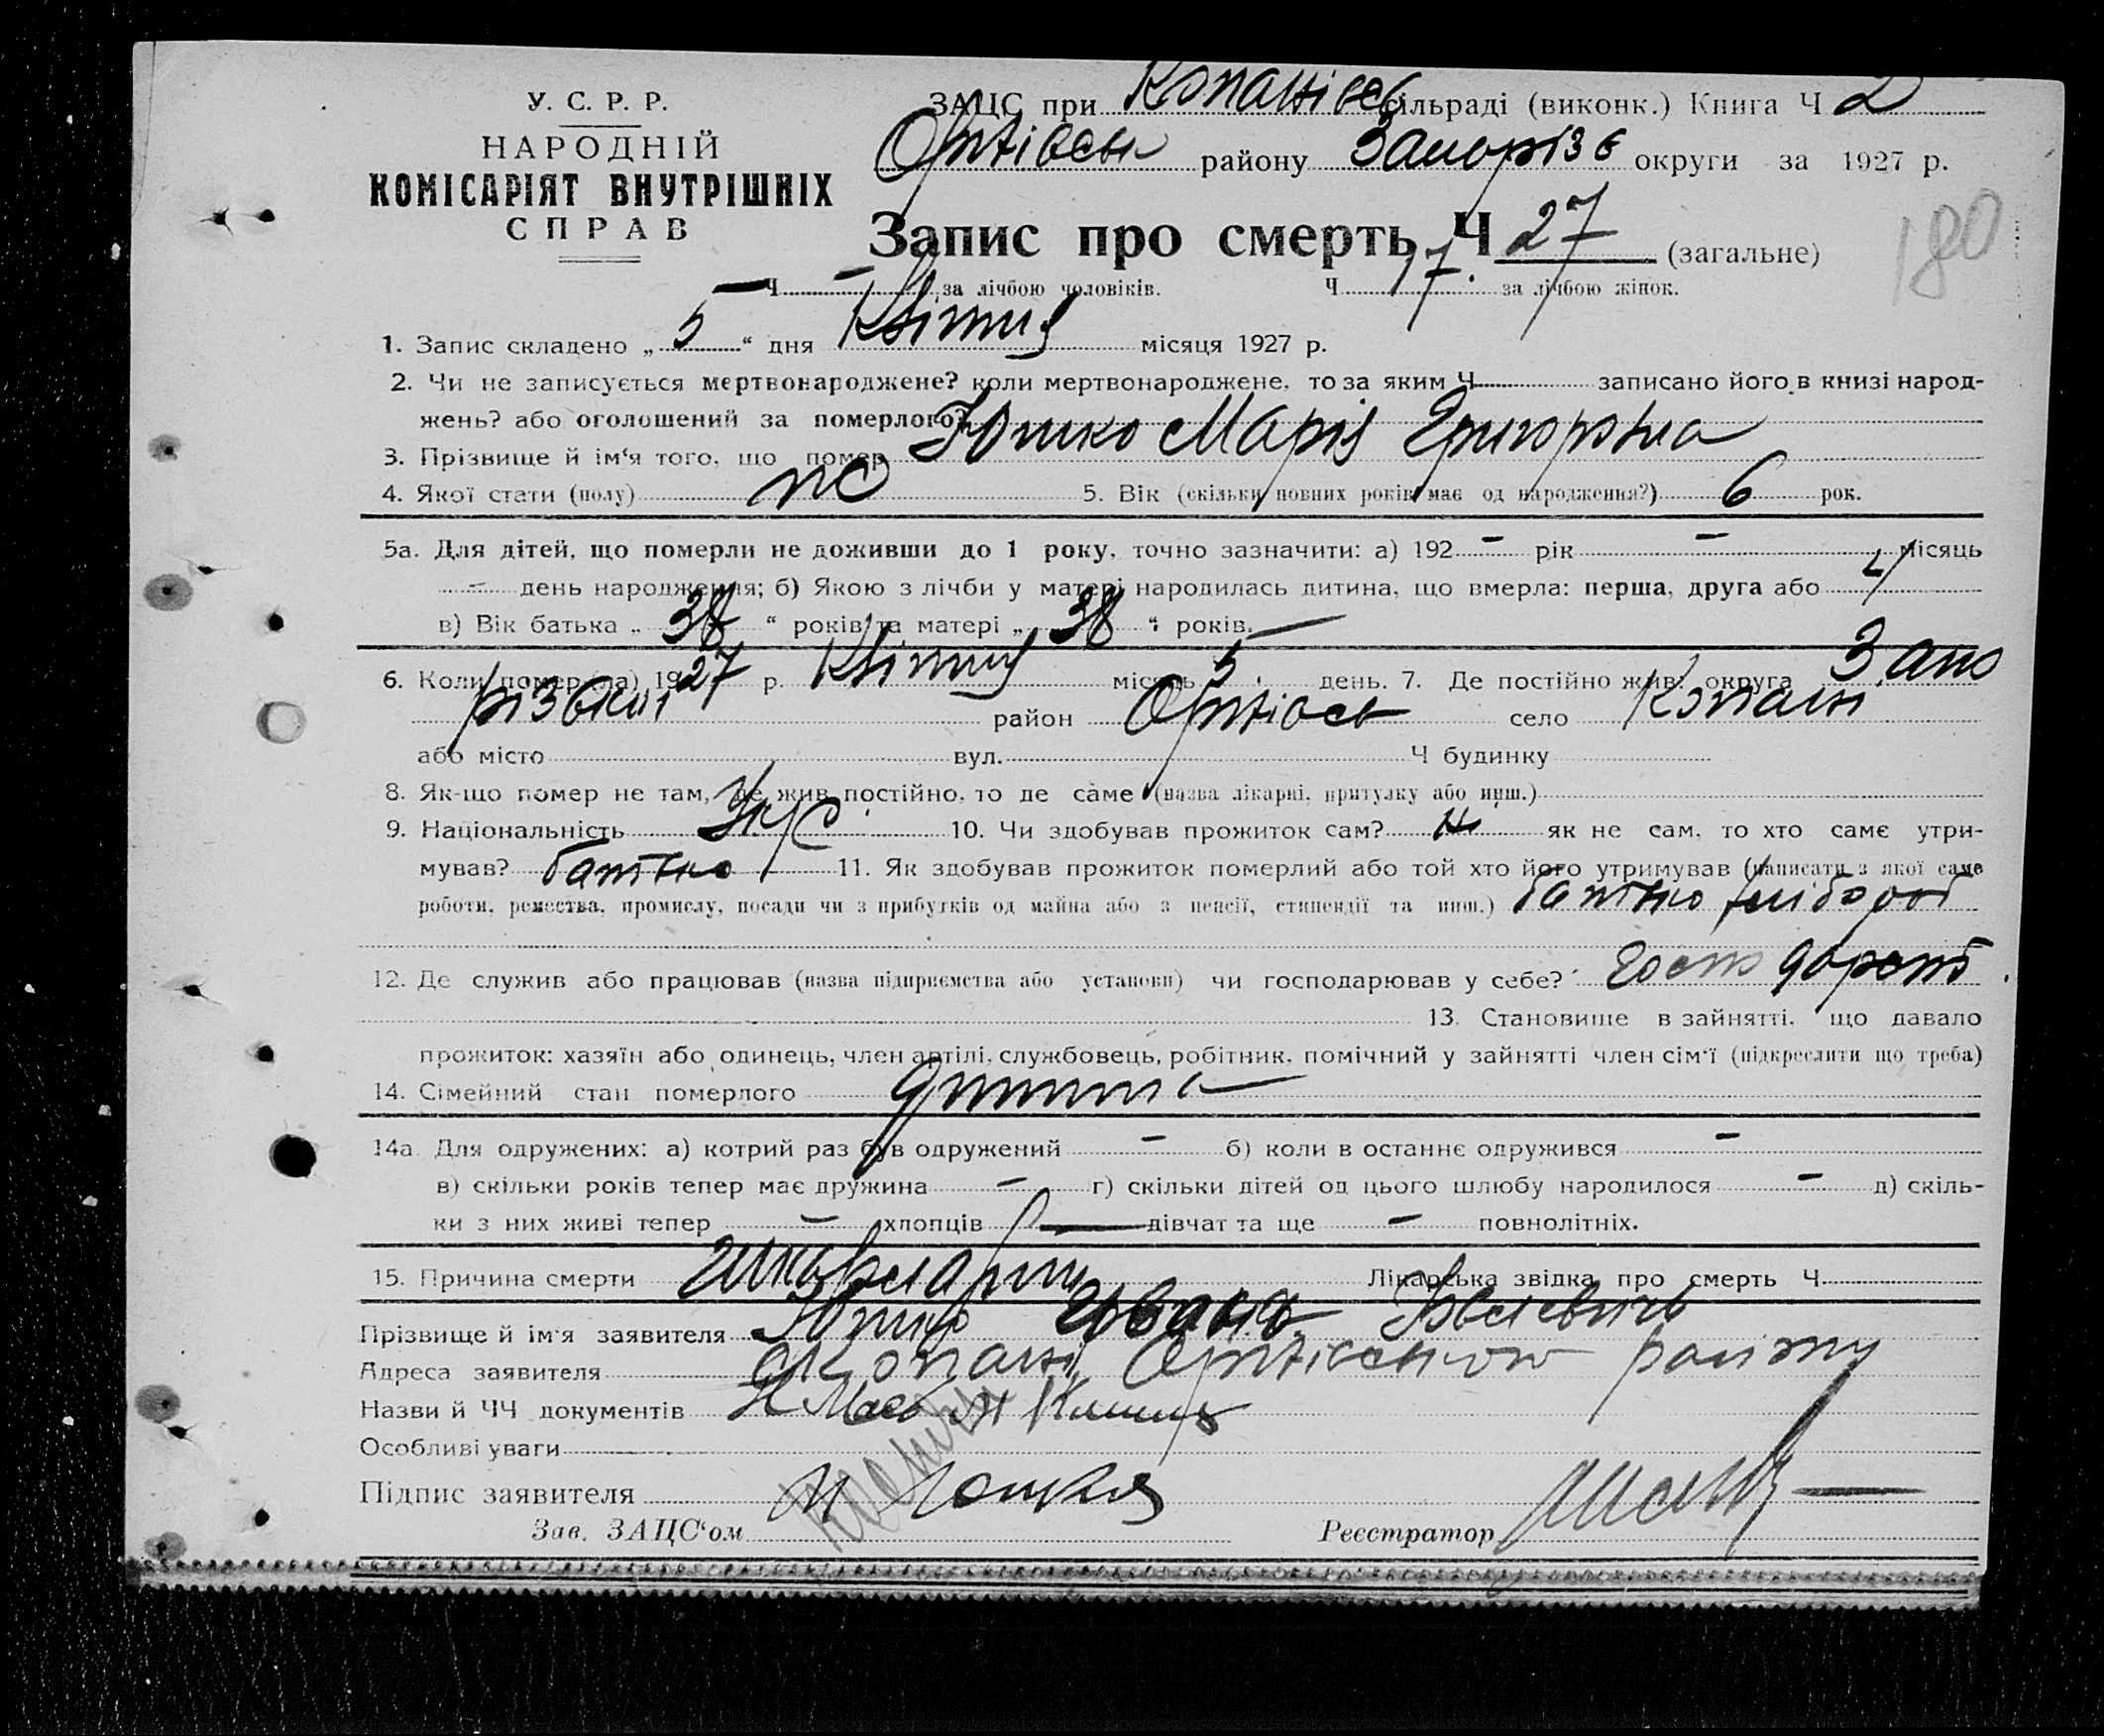 У. С. Р. Р.
НАРОДНІЙ
КОМІСАРІЯТ ВНУТРІШНІХ
СПРАВ
ЗАЦС при Копанівсь сільраді (виконк.) Книга Ч 2
Оріхівськ району Запоріз округи за 1927 р.
Запис про смерть Ч 27 (загальне)
180
Ч – за лічбою чоловіків. Ч 17. за лічбою жінок.
1. Запис складено „ 5 “ дня Квітня місяця 1927 р.
2. Чи не записується мертвонароджене? коли мертвонароджене, то за яким Ч записано його в книзі народ-
жень? або оголошений за померлого?
3. Прізвище й ім‘я того, що помер Юшко Марія Григорівна
4. Якої стати (полу) жо 5. Вік (скільки повних років має од народження?) 6 рок.
5а. Для дітей, що померли не доживши до 1 року, точно зазначити: а) 192 – рік – місяць
– день народження; б) Якою з лічби у матері народилась дитина, що вмерла: перша, друга або 4
в) Вік батька „ 38 “ років та матері „ 38 “ років. —
6. Коли помер(ла) 1927 р. Квітня місяць 5 день. 7. Де постійно жив? округа Запо
різької район Оріхівськ село Копані
або місто вул. Ч будинку
8. Як-що помер не там, де жив постійно, то де саме (назва лікарні, притулку або инш.)
9. Національність Укр 10. Чи здобував прожиток сам? ні як не сам, то хто саме утри-
мував? батько 11. Як здобував прожиток померлий або той хто його утримував (написати з якої саме
роботи, ремества, промислу, посади чи з прибутків од майна або з пенсії, стипендії та инш.) батько хлібороб
12. Де служив або працював (назва підприємства або установи) чи господарював у себе? господарств
13. Становище в зайнятті, що давало
прожиток: хазяїн або одинець, член артілі, службовець, робітник, помічний у зайнятті член сім‘ї (підкреслити що треба)
14. Сімейний стан померлого дитина
14а. Для одружених: а) котрий раз був одружений – б) коли в останнє одружився –
в) скільки років тепер має дружина – г) скільки дітей од цього шлюбу народилося – д) скіль-
ки з них живі тепер – хлопців — дівчат та ще – повнолітніх.
15. Причина смерти Лікарська звідка про смерть Ч
Прізвище й ім‘я заявителя Юшко
Адреса заявителя с Копані Оріхівського району
Назви й ЧЧ документів
Особливі уваги
Підпис заявителя
Зав. ЗАЦС‘ом Реєстратор